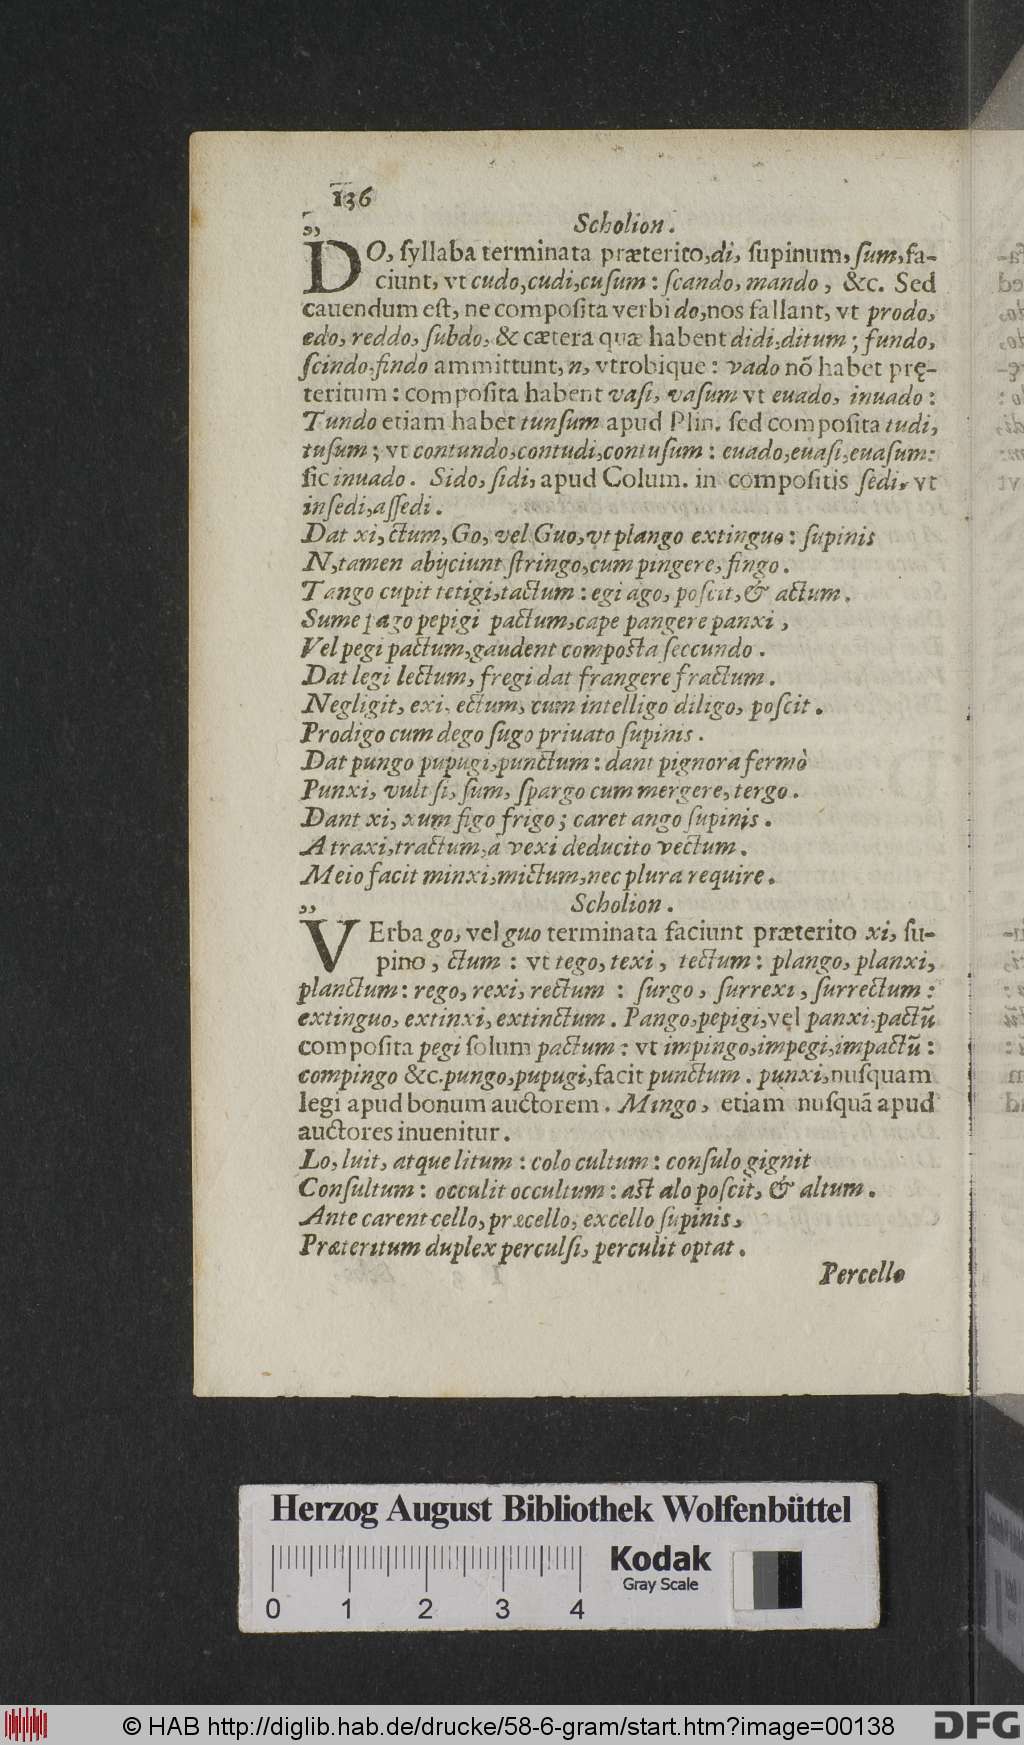 136
Scholion.
„
DO, ſyllaba terminata præterito, di, ſupinum, ſum, fa-
ciunt, vt cudo, cudi, cuſum: ſcando, mando, &c. Sed
cauendum eſt, ne compoſita verbi do, nos fallant, vt prodo,
edo, reddo, ſubdo, & cætera quæ habent didi, ditum; fundo,
ſcindo, findo ammittunt, n, vtrobique: vado nõ habet prę-
teritum: compoſita habent vaſi, vaſum vt euado, inuado:
Tundo etiam habet tunſum apud Plin. ſed compoſita tudi,
tuſum; vt contundo, contudi, contuſum: euado, euaſi, euaſum:
ſic inuado. Sido, ſidi, apud Colum. in compoſitis ſêdi, vt
inſedi, aſſedi.
Dat xi, ctum, Go, vel Guo, vt plango extinguo: ſupinis
N, tamen abijciunt ſtringo, cum pingere, fingo.
Tango cupit tetigi, tactum: egi ago, poſcit, & actum.
Sume pago pepigi pactum, cape pangere panxi,
Vel pegi pactum, gaudent compoſta ſeccundo.
Dat legi lectum, fregi dat frangere fractum.
Negligit, exi, ectum, cum intelligo diligo, poſcit.
Prodigo cum dego ſugo priuato ſupinis.
Dat pungo pupugi, punctum: dant pignora fermò
Punxi, vult ſi, ſum, ſpargo cum mergere, tergo.
Dant xi, xum figo frigo; caret ango ſupinis.
A traxi, tractum, à vexi deducito vectum.
Meio facit minxi, mictum, nec plura require.
Scholion.
„
VErba go, vel guo terminata faciunt præterito xi, ſu-
pino, ctum: vt tego, texi, tectum: plango, planxi,
planctum: rego, rexi, rectum: ſurgo, ſurrexi, ſurrectum:
extinguo, extinxi, extinctum. Pango, pepigi, vel panxi, pactũ
compoſita pegi ſolum pactum: vt impingo, impegi, impactũ:
compingo &c. pungo, pupugi, facit punctum. punxi, nuſquam
legi apud bonum auctorem. Mingo, etiam nuſquã apud
auctores inuenitur.
Lo, luit, atque litum: colo cultum: conſulo gignit
Conſultum: occulit occultum: aſt alo poſcit, & altum.
Ante carent cello, præcello, excello ſupinis,
Præteritum duplex perculſi, perculit optat.
Percello
Herzog August Bibliothek Wolfenbüttel
Kodak
Gray Scale
0 1 2 3 4
© HAB http://diglib.hab.de/drucke/58-6-gram/start.htm?image=00138
DFG